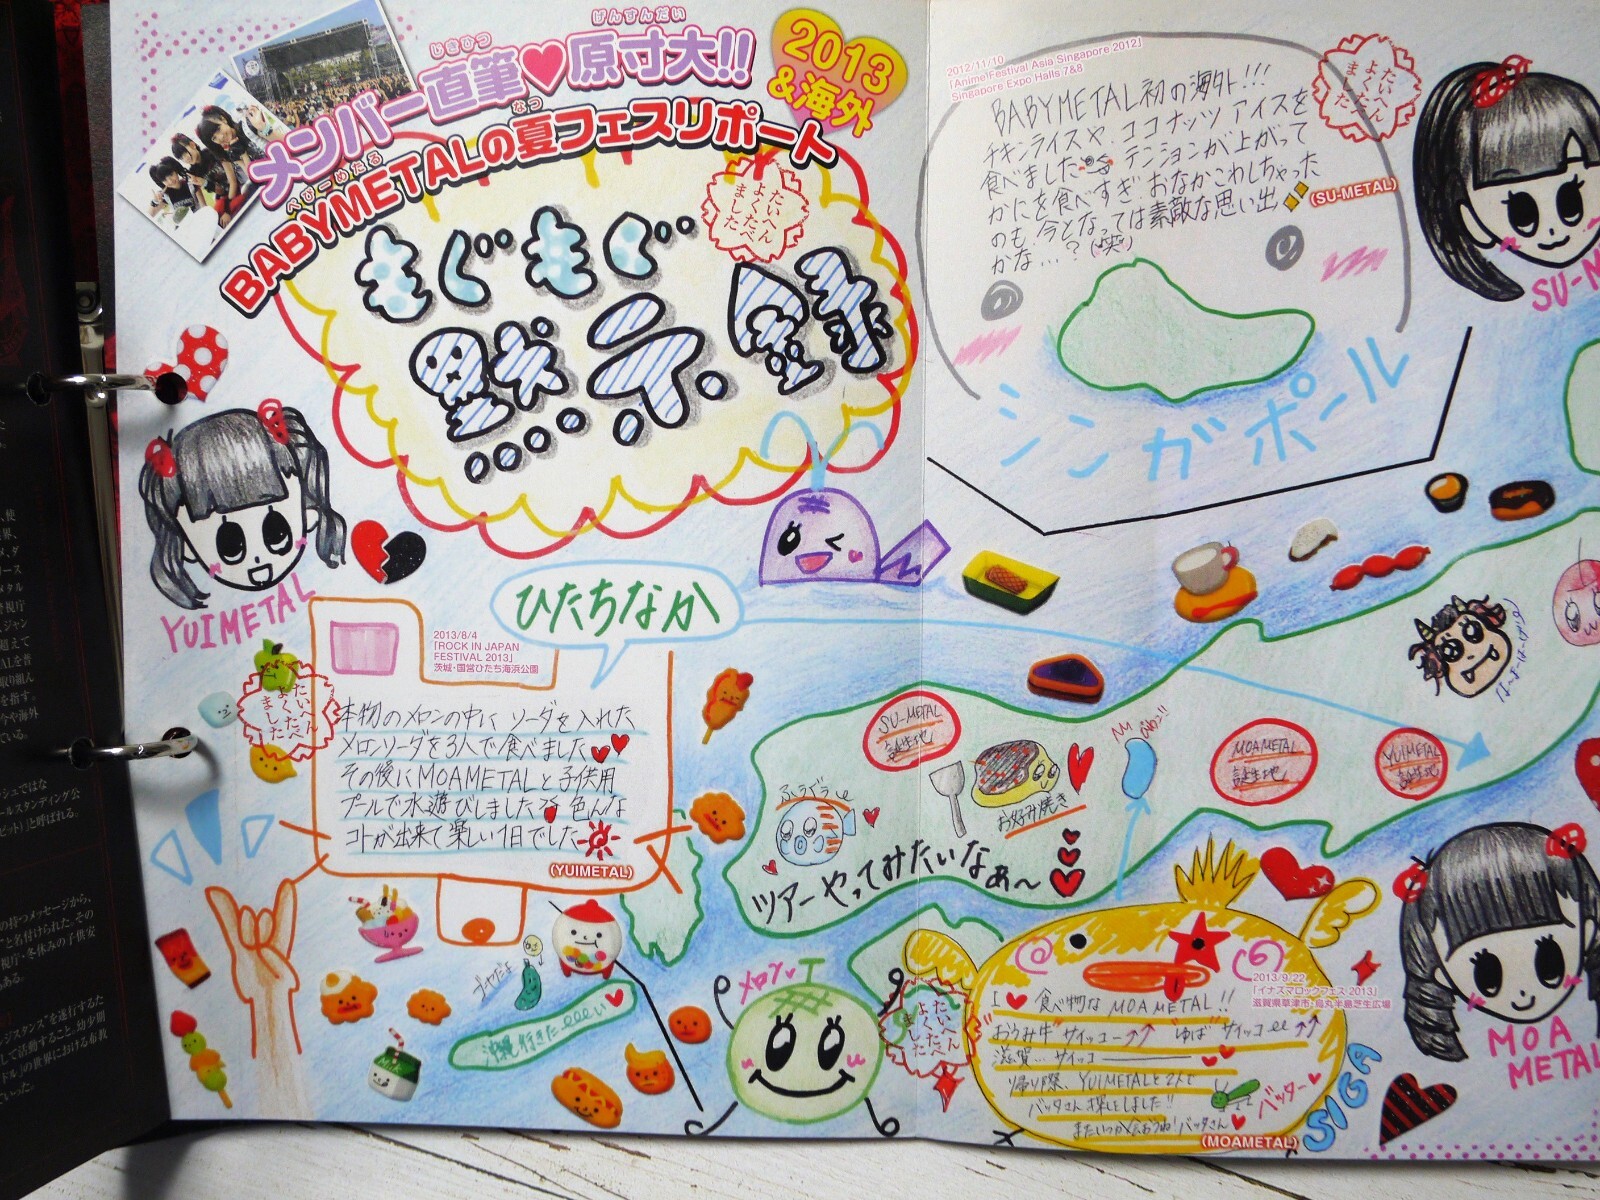 じきひつ げんすんだい
メンバー直筆♥原寸大!!
べびーめたる なつ
BABYMETALの夏フェスリポート
2013
&海外
もぐもぐ
たいへん
よくたべ
ました
YUIMETAL
ひたちなか
2013/8/4
「ROCK IN JAPAN
FESTIVAL 2013」
茨城・国営ひたち海浜公園
たいへん
よくたべ
ました
本物のメロンの中に ソーダを 入れた
メロンソーダを3人で食べました
その後にMOAMETALと子供用
プールで水遊びしました 色んな
コトが出来て楽しい1日でした
(YUIMETAL)
2012/11/10
「Anime Festival Asia Singapore 2012」
Singapore Expo Halls 7&8
BABYMETAL初の海外!!!
チキンライスや ココナッツ アイスを
食べました テンションが上がって
かにを食べすぎ おなかこわしちゃった
のも、今となっては素敵な思い出
かな…?(笑)
(SU-METAL)
たいへん
よくたべ
ました
シンガポール
SU-M
SU-METAL
誕生地
お好み焼き
びわっ!!
MOAMETAL
誕生地
YUIMETAL
誕生地
ツアーやってみたいなぁ〜
メロン
沖縄行きた
たいへん
よくたべ
ました
2013/9.22
「イナズマロックフェス 2013」
滋賀県草津市・烏丸半島芝生広場
I ♥ 食べ物な MOAMETAL!!
"おうみ牛"サイッコー "ゆば"サイッコ
滋賀… サイッコ
帰り際、YUIMETALと2人で
バッタさん探しをしました!!
またいつか会おうね!バッタさん
バッター
(MOAMETAL)
SIGA
MOA
METAL